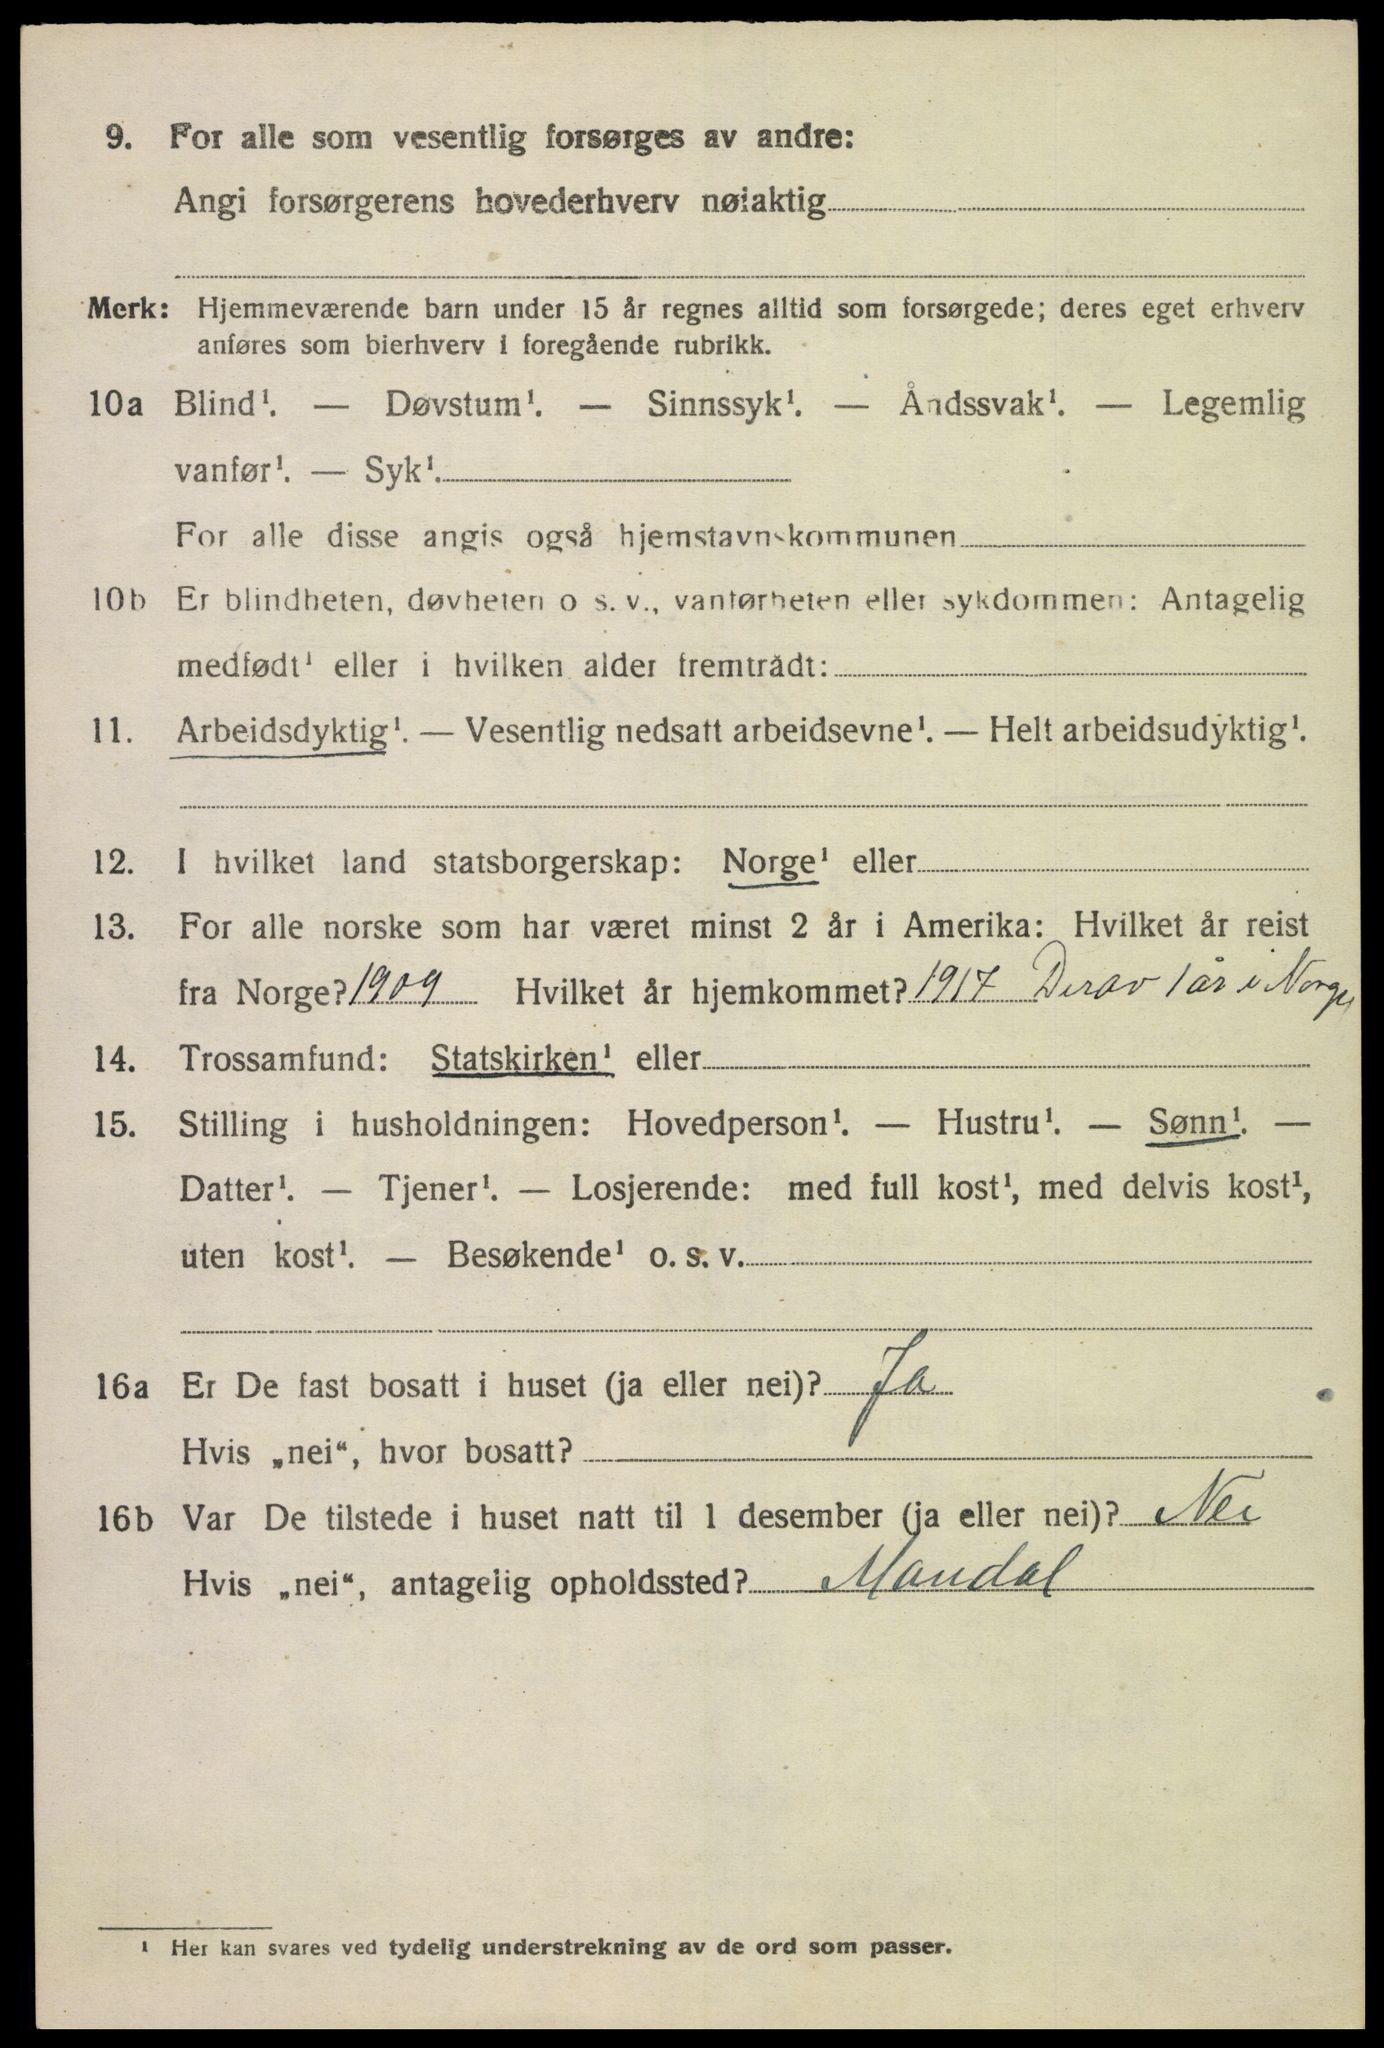 9. For alle som vesentlig forsørges av andre:
Angi forsørgerens hovederhverv nøiaktig
Merk: Hjemmeværende barn under 15 år regnes alltid som forsørgede; deres eget erhverv
anføres som bierhverv i foregående rubrikk.
10a Blind¹. — Døvstum¹. — Sinnssyk¹. — Åndssvak¹. — Legemlig
vanfør¹. — Syk¹.
For alle disse angis også hjemstavnskommunen
10b Er blindheten, døvheten o s. v., vanførheten eller sykdommen: Antagelig
medfødt¹ eller i hvilken alder fremtrådt:
11. Arbeidsdyktig¹. — Vesentlig nedsatt arbeidsevne¹. — Helt arbeidsudyktig¹.
12. I hvilket land statsborgerskap: Norge¹ eller
13. For alle norske som har været minst 2 år i Amerika: Hvilket år reist
fra Norge? 1909 Hvilket år hjemkommet? 1917 Derav 1 år i Norge
14. Trossamfund: Statskirken¹ eller
15. Stilling i husholdningen: Hovedperson¹. — Hustru¹. — Sønn¹. —
Datter¹. — Tjener¹. — Losjerende: med full kost¹, med delvis kost¹,
uten kost¹. — Besøkende¹ o. s. v.
16a Er De fast bosatt i huset (ja eller nei)? Ja
Hvis „nei“, hvor bosatt?
16b Var De tilstede i huset natt til 1 desember (ja eller nei)? Nei
Hvis „nei“, antagelig opholdssted? Mandal
¹ Her kan svares ved tydelig understrekning av de ord som passer.